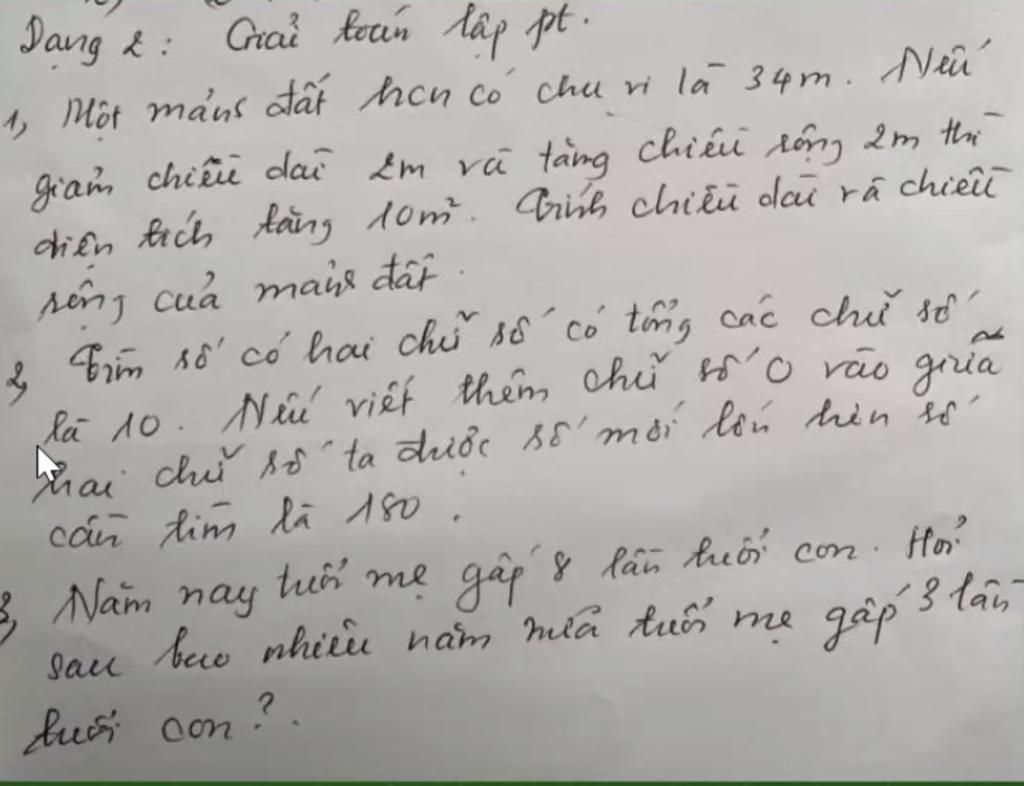 Dạng 2: Giải toán lập pt.
1, Một mảnh đất hcn có chu vi là 34m. Nếu
giảm chiều dài 2m và tăng chiều rộng 2m thì
diện tích tăng 10m². Tính chiều dài và chiều
rộng của mảnh đất.
2, Tìm số có hai chữ số có tổng các chữ số
là 10. Nếu viết thêm chữ số 0 vào giữa
hai chữ số ta được số mới lớn hơn số
cần tìm là 180.
3, Năm nay tuổi mẹ gấp 8 lần tuổi con. Hỏi
sau bao nhiêu năm nữa tuổi mẹ gấp 3 lần
tuổi con?.